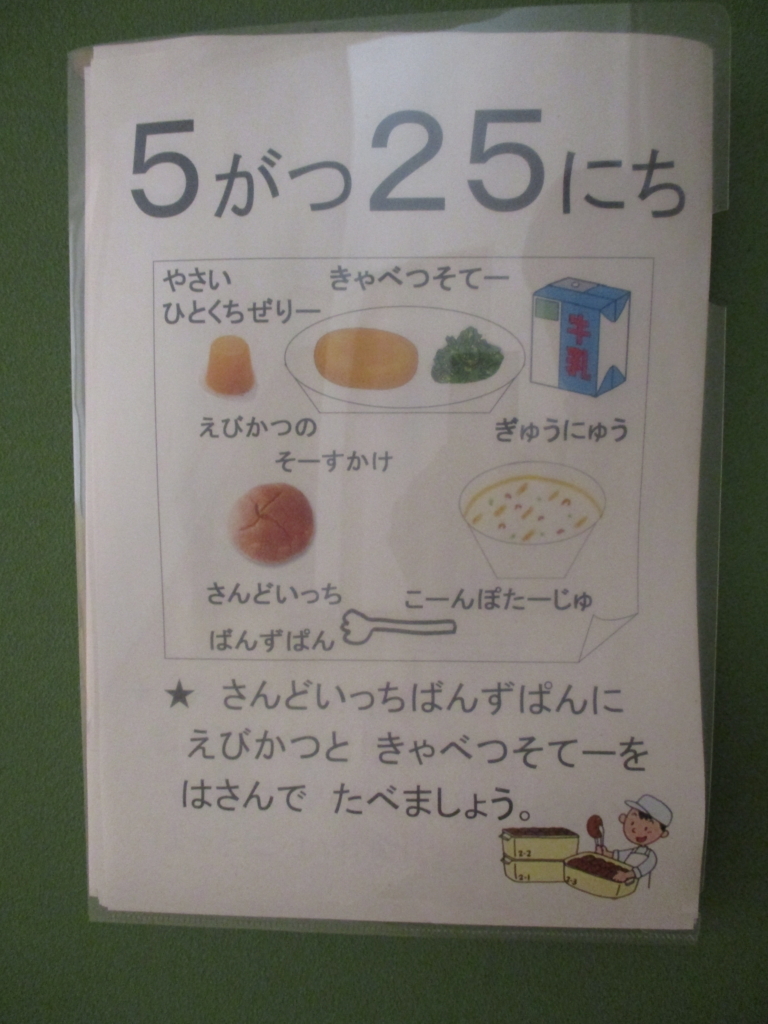 5がつ25にち
やさい
ひとくちぜりー
きゃべつそてー
牛乳
えびかつの
そーすかけ
ぎゅうにゅう
さんどいっち
ばんずぱん
こーんぽたーじゅ
★ さんどいっちばんずぱんに
えびかつと きゃべつそてーを
はさんで たべましょう。
2-2
2-1
2-3